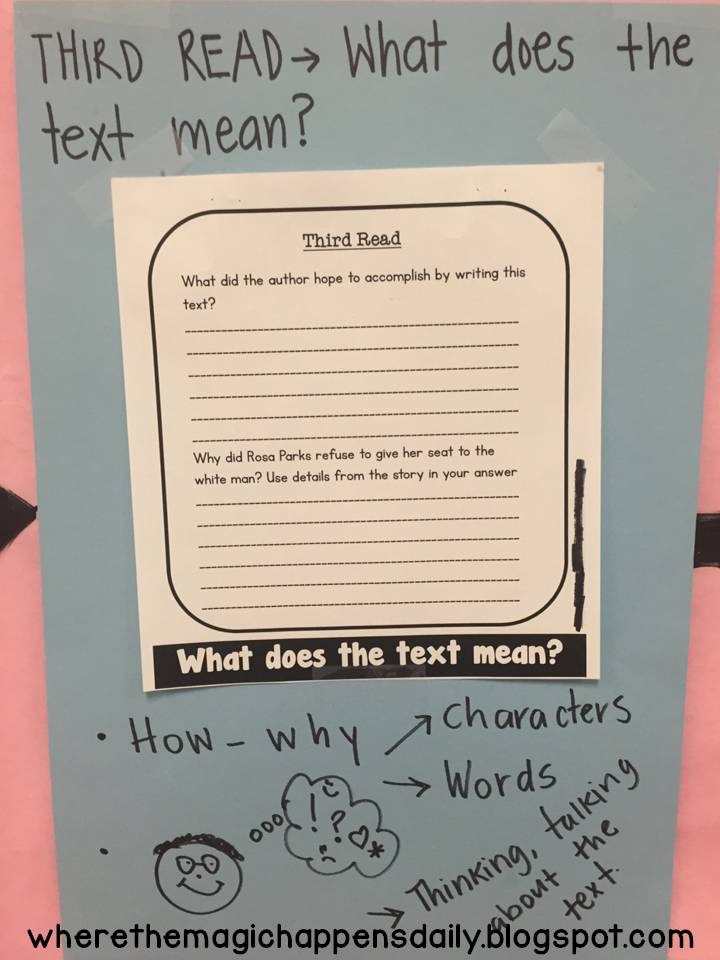 THIRD READ → What does the
text mean?
Third Read
What did the author hope to accomplish by writing this
text?
Why did Rosa Parks refuse to give her seat to the
white man? Use details from the story in your answer
What does the text mean?
• How - why ↗ characters
→ Words
! ? ♡ *
→ Thinking, talking
about the
text.
wherethemagichappensdaily.blogspot.com